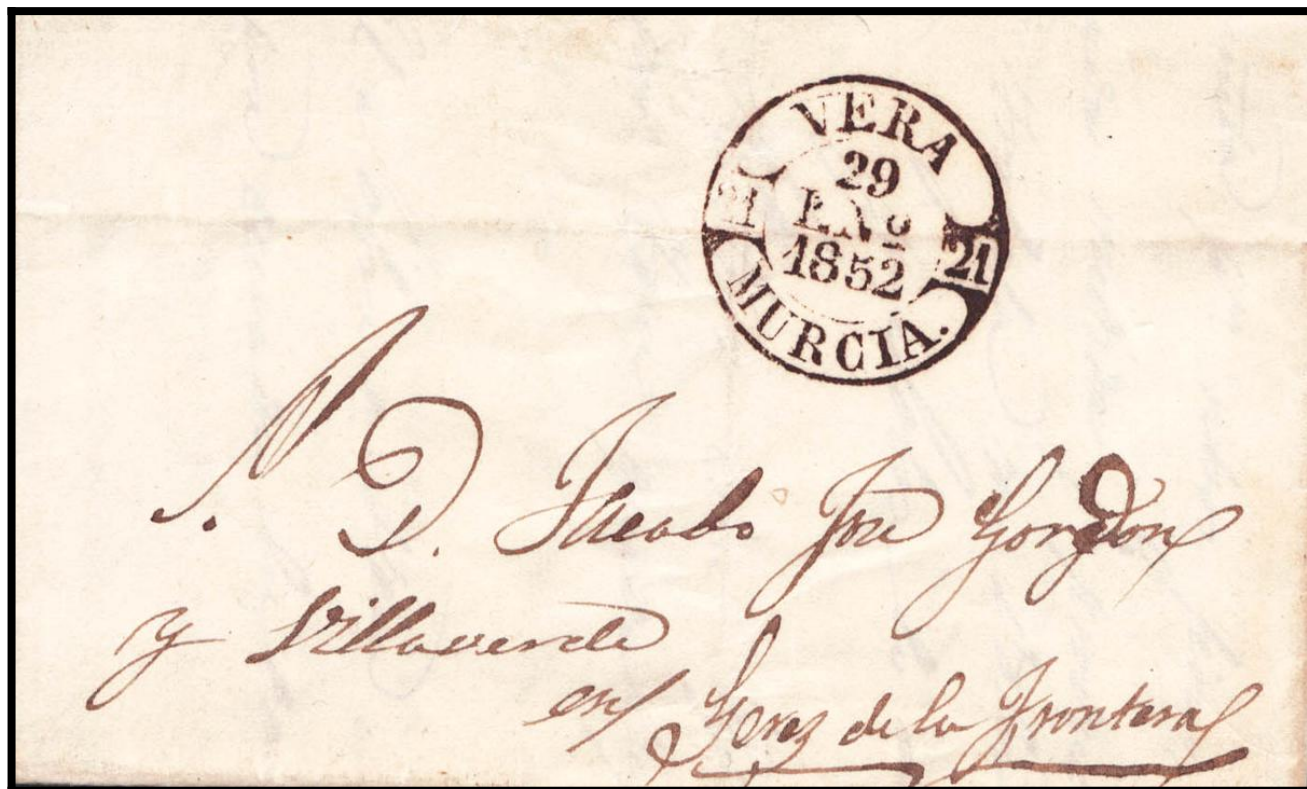 VERA
29
ENº
1852
21 21
MURCIA.
A. D. Jacobo José Gordon
y Villaverde
en Gerez de la Frontera